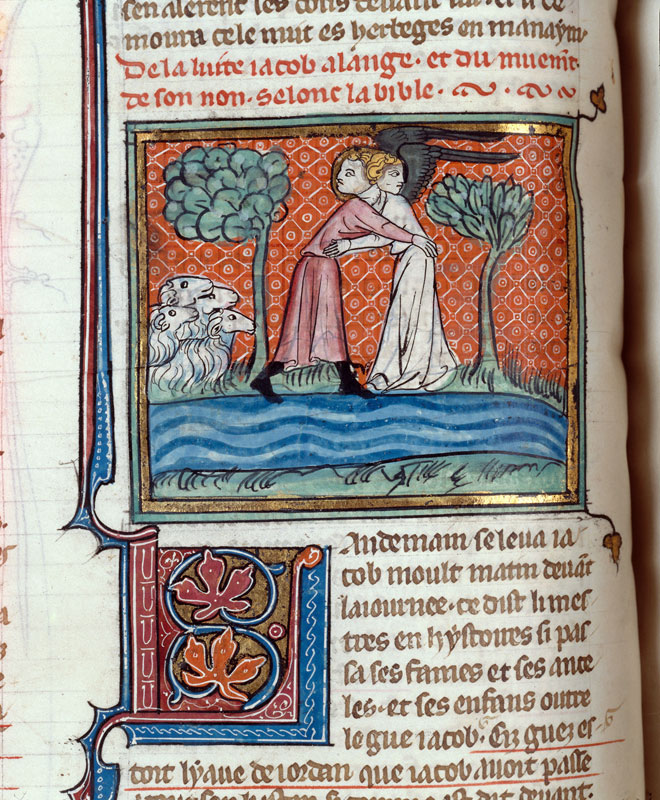 sen alerent les cols devant lui et il de
moura cele nuit es herbeges en manaym
De la luite iacob a lange. et du muemt
de son non. selonc la bible.
Landemain se leva ia
cob moult matin devāt
la iournee. ce dist li mes
tres en hystoires si pas
sa ses fames et ses ance
les. et ses enfans outre
le gue iacob. Cis guez es
toit lyaue de iordan que iacob avoit passe